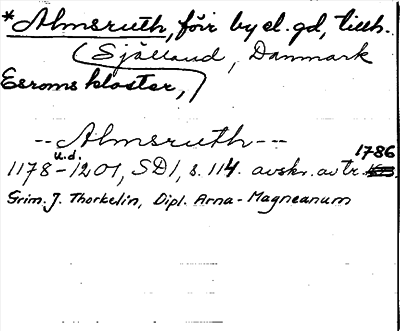 *Almsruth, förr by el. gd, tillh.
(Själland, Danmark
Esroms kloster,)
--Almsruth--
u.d. 1786
1178-1201, SD1, s. 114. avskr. av tr.
Grim. J. Thorkelin, Dipl. Arna-Magneanum